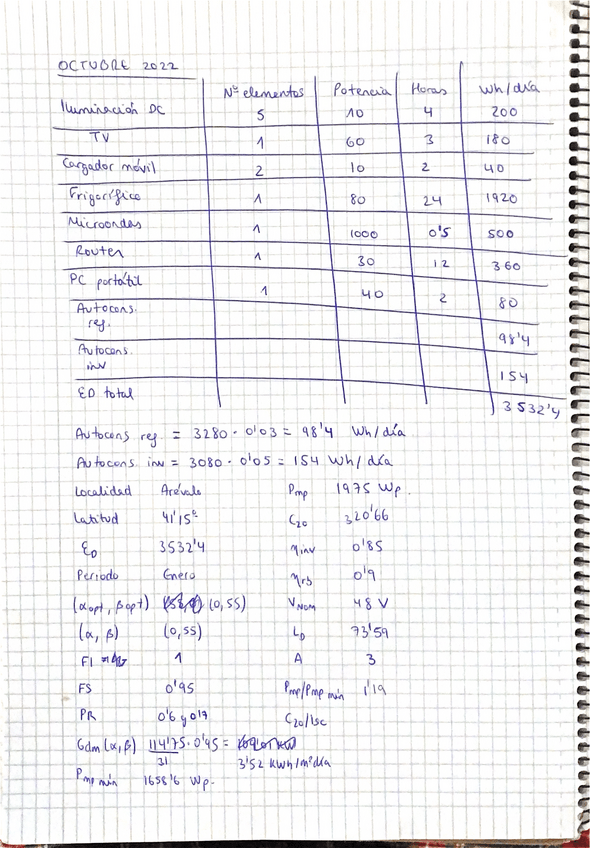 OCTUBRE 2022
Nº elementos Potencia Horas Wh/día
Iluminación DC 5 10 4 200
TV 1 60 3 180
Cargador móvil 2 10 2 40
Frigorífico 1 80 24 1920
Microondas 1 1000 0'5 500
Router 1 30 12 360
PC portátil 1 40 2 80
Autocons. reg. 98'4
Autocons. inv 154
ED total 3532'4
Autocons reg = 3280 · 0'03 = 98'4 Wh/día
Autocons. inv = 3080 · 0'05 = 154 Wh/día
Localidad Arévalo Pmp 1975 Wp.
Latitud 41'15º C20 320'66
ED 3532'4 ηinv 0'85
Periodo Enero ηrb 0'9
(αopt, βopt) (0, 55) VNOM 48 V
(α, β) (0,55) LD 73'59
FI 1 A 3
FS 0'95 Pmp/Pmp min 1'19
PR 0'6 y 0'7 C20/Isc
Gdm(α,β) 114'75/31 · 0'95 = 3'52 kWh/m²día
Pmp min 1658'6 Wp.